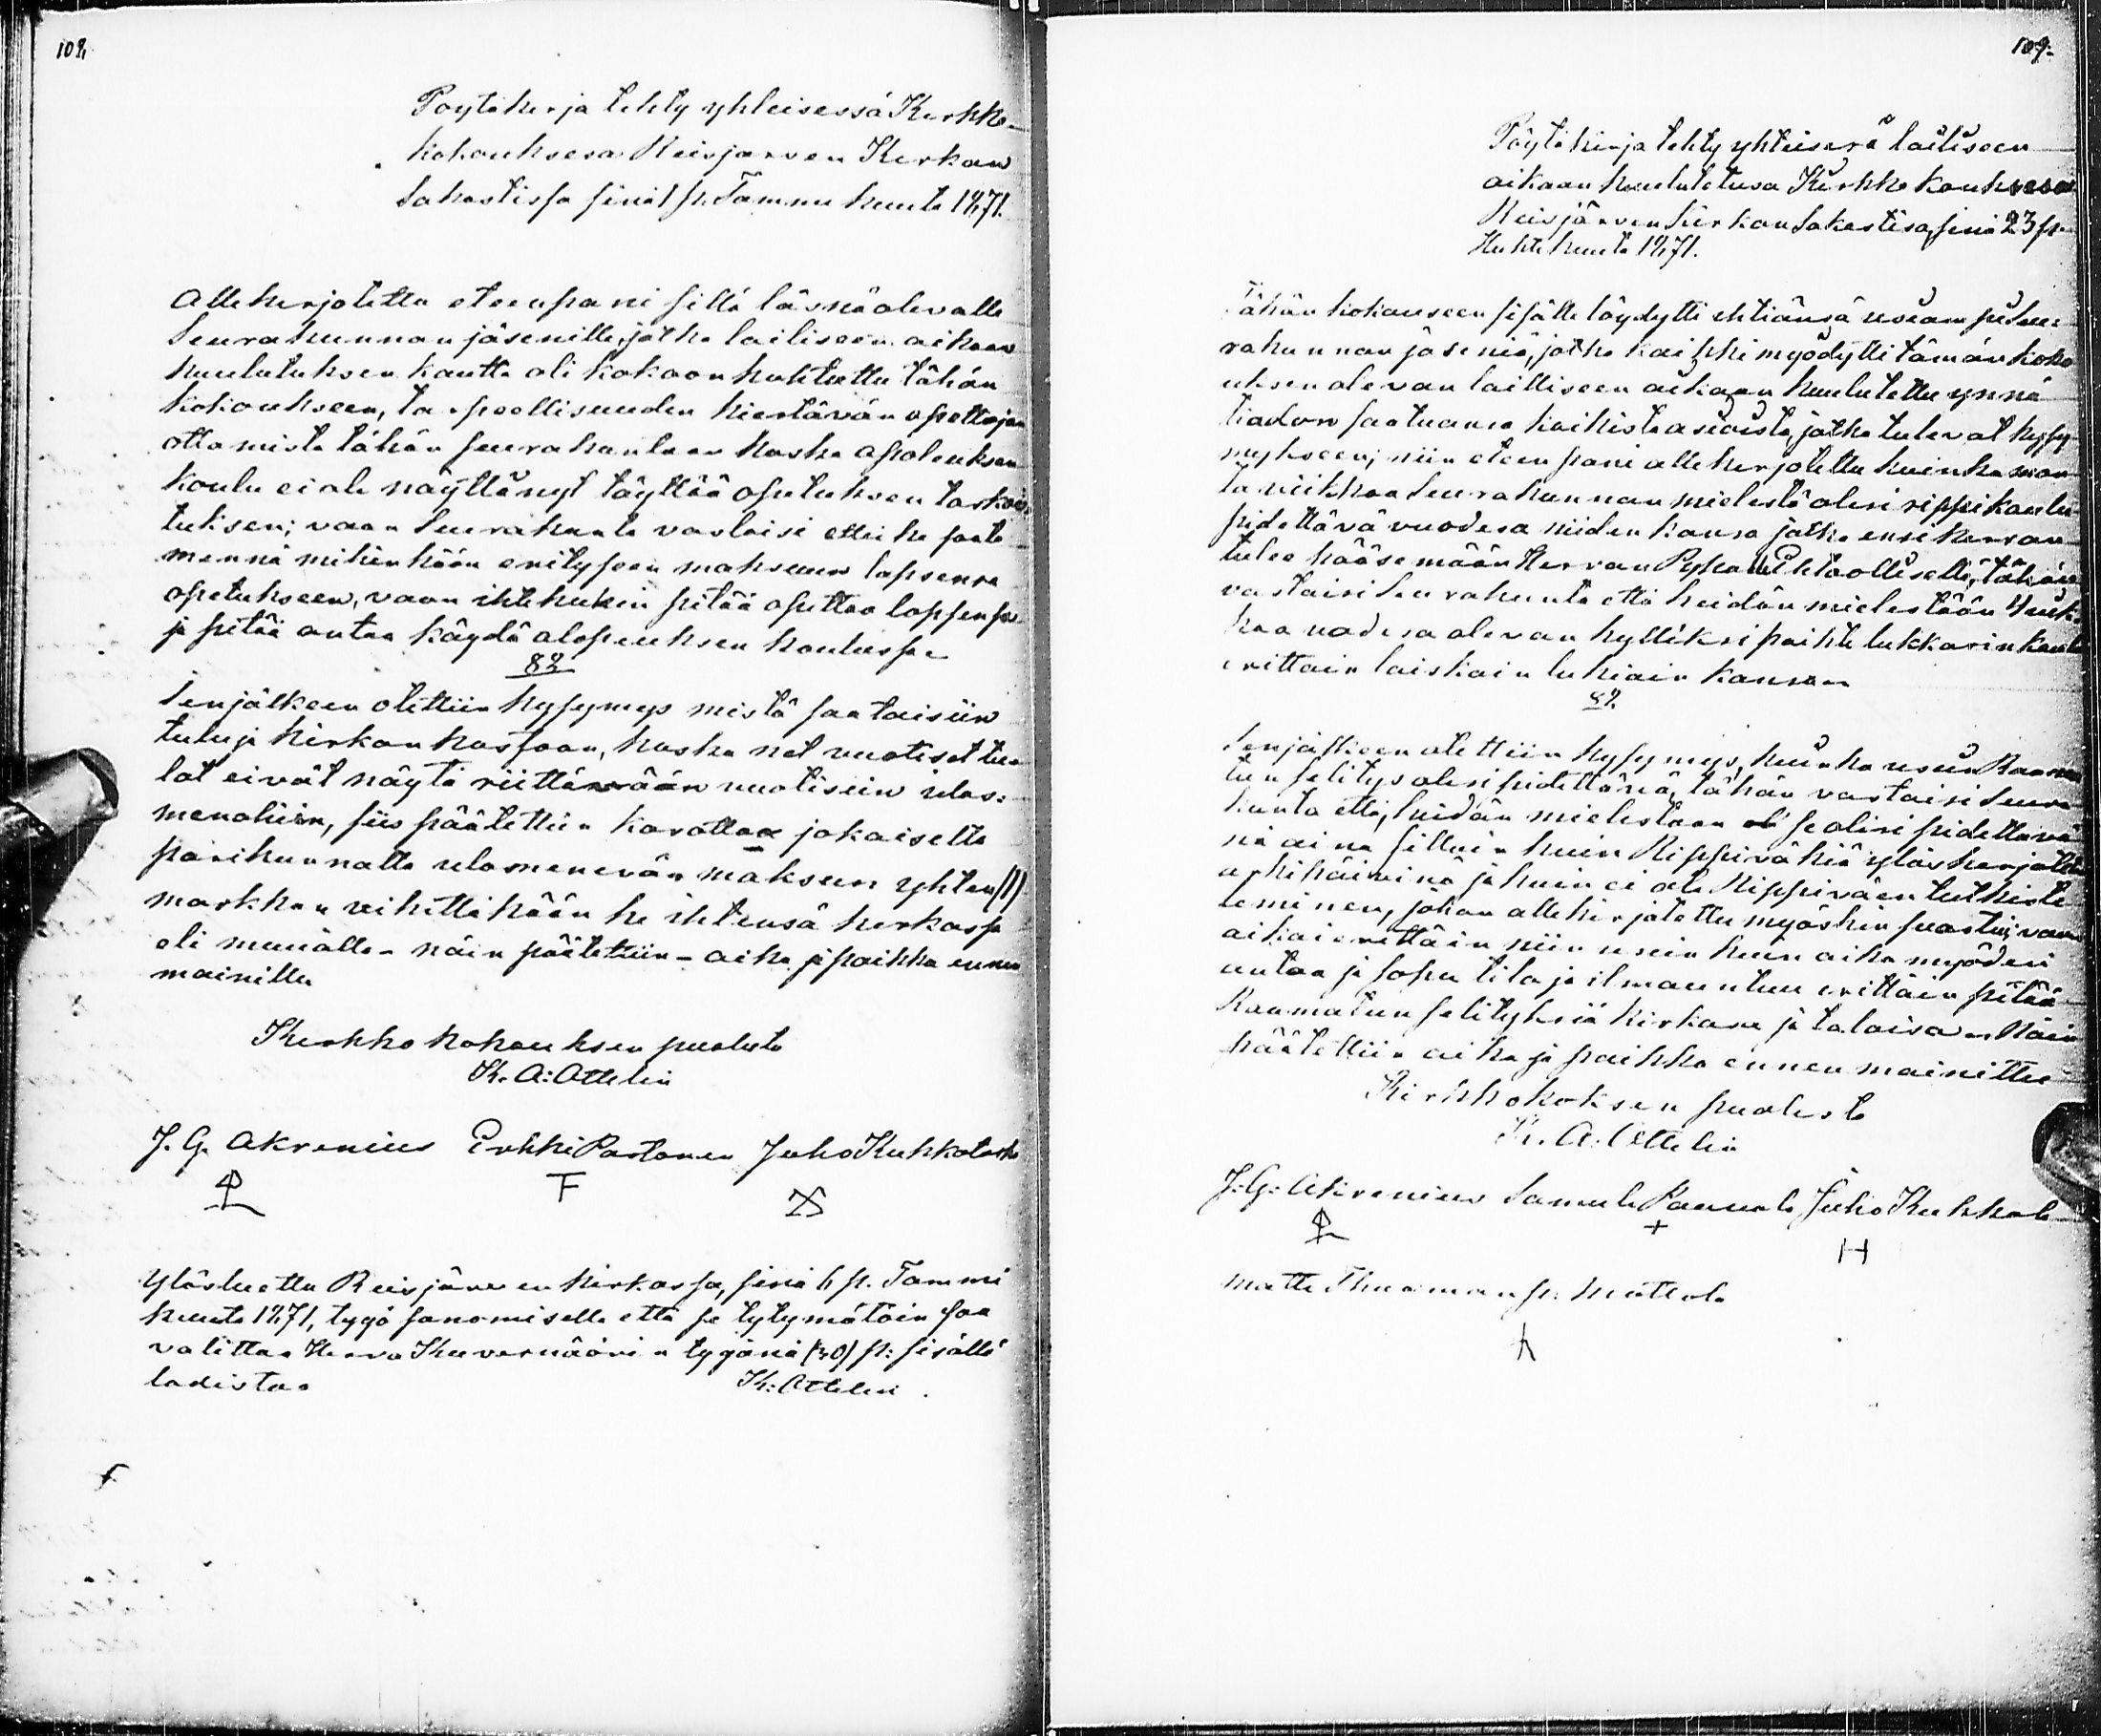 108,
Pöytäkirja tehty yhteisessä Kirkko-
kokouksesa Reisjärven Kirkon
Sakastissa sinä 1 p. Tammikuuta 1871.
Allekirjoitettu eteenpani sillä läsnäolevalle
Seurakunnan jäsenille, jotka lailliseen aikaan
kuulutuksen kautta oli kokoon kutsuttu tähän
kokoukseen, tarpeellisuuden kiertävän opettajan
ottamista tähän seurakuntaan koska Apolauksen
koulu ei ole näyttänyt täyttää opetuksen tarkoi-
tuksen; vaan Seurakunta vastaisi ettei he saata
mennä mihinkään erityseen maksuun lapsensa
opetukseen, vaan itsekukin pitää opettaa lapsensa
ja pitää antaa käydä alapeuksen koulussa
§2
Senjälkeen otettiin kysymys mistä saataisiin
tuluja kirkon kassaan, koska net vuotiset tu-
lot eivät näytä riittäwään vuotisiin ulos:
menoihin, siis päätettiin korottaa jokaiselta
parikunnalta ulosmenevän maksun yhten (1)
markkan vihittiköön he ihtensä kirkossa
eli muualla - näin päätettiin - aika ja paikka ennen
mainittu
Kirkkokokouksen puolesta
K. A: Ottelin
J. G. Akrenius Erkki Partanen Juho Kukkola
F
Ylösluettu Reisjärven kirkossa, sinä 6 p. Tammi
kuuta 1871, tygö sanomisella että se tytymätöin saa
valittaa Herra Kuvernöörin tygönä (30) p: sisällä
todistaa K: Ottelin
109.
Pöytäkirja tehty yhteisesä lailiseen
aikaan kuulutetusa Kirkko kouksesa
Reisjärven Kirkon Sakastisa, sinä 23 p.
Huhtikuuta 1871.
Tähän kokouseen sisälle löydytti ehtiänsä useampi seu-
rakunnan jäseniä, jotka kaikki myödytti tämän koko
uksen olevan lailliseen aikaan kuulutettu ynnä
tiedon saatuansa kaikista asioista, jotka tulevat kysy
mykseen; niin eteenpani allekirjotettu kuinka mon
ta viikkoa Seurakunnan mielestä olisi rippikoulu
pidettävä vuodesa niiden kansa jotka ensikerran
tulee pääsemään Herran Pyhälle Ehtoolliselle, tähän
vastaisi Seurakunta että heidän mielestään 4 viik-
koa vuodesa olevan kylliksi paitsi lukkarinkoulu
erittäin laiskain lukiain kansaa
§2.
Senjälkeen otettiin kysymys, kuinka usein Raama
tun selitys olisi pidettävä, tähän vastaisi Seura
kunta että, heidän mielestään se olisi pidettävä
nä aina silloin kuin Rippiväkiä ylöskirjoitetaan
arkipäivinä ja kuin ei ole Rippiväen tutkiste
leminen, johon allekirjotettu myöskin suostui; vaan
aikai erittäin niin usein kuin aika myöden
antaa ja sopu tila ja ilmauntuu erittäin pitää
Raamatun selityksiä kirkosa ja taloisa. Näin
päätettiin aika ja paikka ennen mainittu
Kirkkokoksen puolesta
K. A: Ottelin
J: G: Akrenius Samuli Paavola Juho Kukkola
+
H
Matti Tuomanp. Mattola